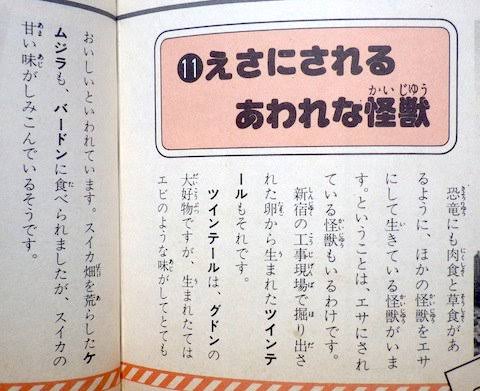 ⓫えさにされる
あわれな怪獣
かいじゅう
恐竜にも肉食と草食があ
るように、ほかの怪獣をエサ
にして生きている怪獣がいま
す。ということは、エサにされ
ている怪獣もいるわけです。
新宿の工事現場で掘り出さ
れた卵から生まれたツインテ
ールもそれです。
ツインテールは、グドンの
大好物ですが、生まれたては
エビのような味がしてとても
おいしいといわれています。スイカ畑を荒らしたケ
ムジラも、バードンに食べられましたが、スイカの
甘い味がしみこんでいるそうです。